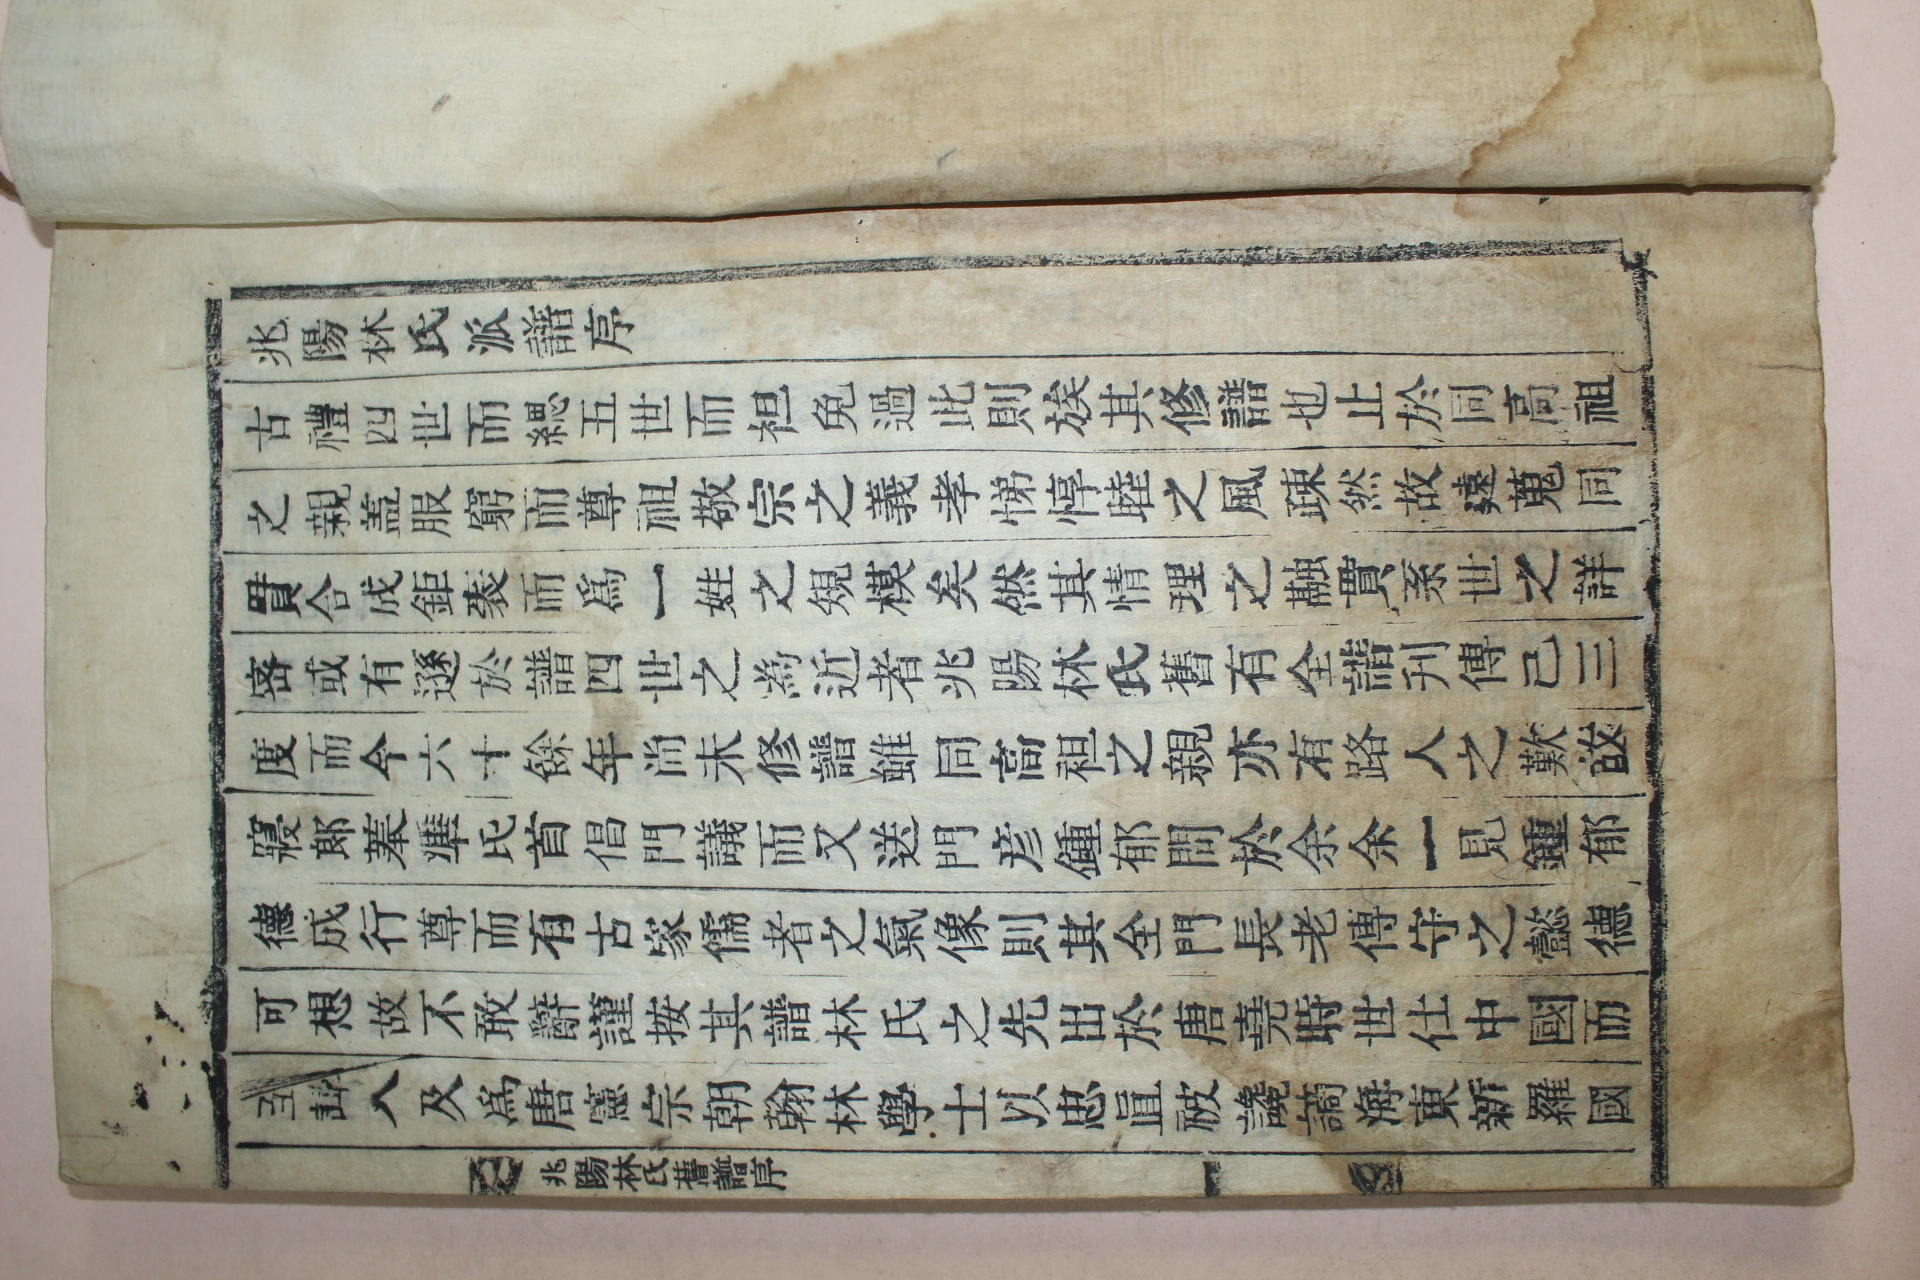 兆陽林氏派譜序
古禮四世而緦五世而袒免過此則族其修譜也止於同高祖
之親盖服窮而尊祖敬宗之義孝悌惇睦之風踈然故遠蒐同
貫合成鉅袠而爲一姓之規模矣然其情理之融貫系世之詳
密或有遜於譜四世之爲近者兆陽林氏舊有全譜刊傳已三
度而今六十餘年尚未修譜雖同高袒之親亦有路人之歎故
寢郎蓁準氏首倡門議而又送門彦鍾郁問於余余一見鍾郁
德成行尊而有古家儒者之氣像則其全門長老傳守之懿德
可想故不敢辭謹按其譜林氏之先出於唐堯時世仕中國而
至諱八及爲唐憲宗朝翰林學士以忠直被讒謫海東新羅國
兆陽林氏舊譜序 一